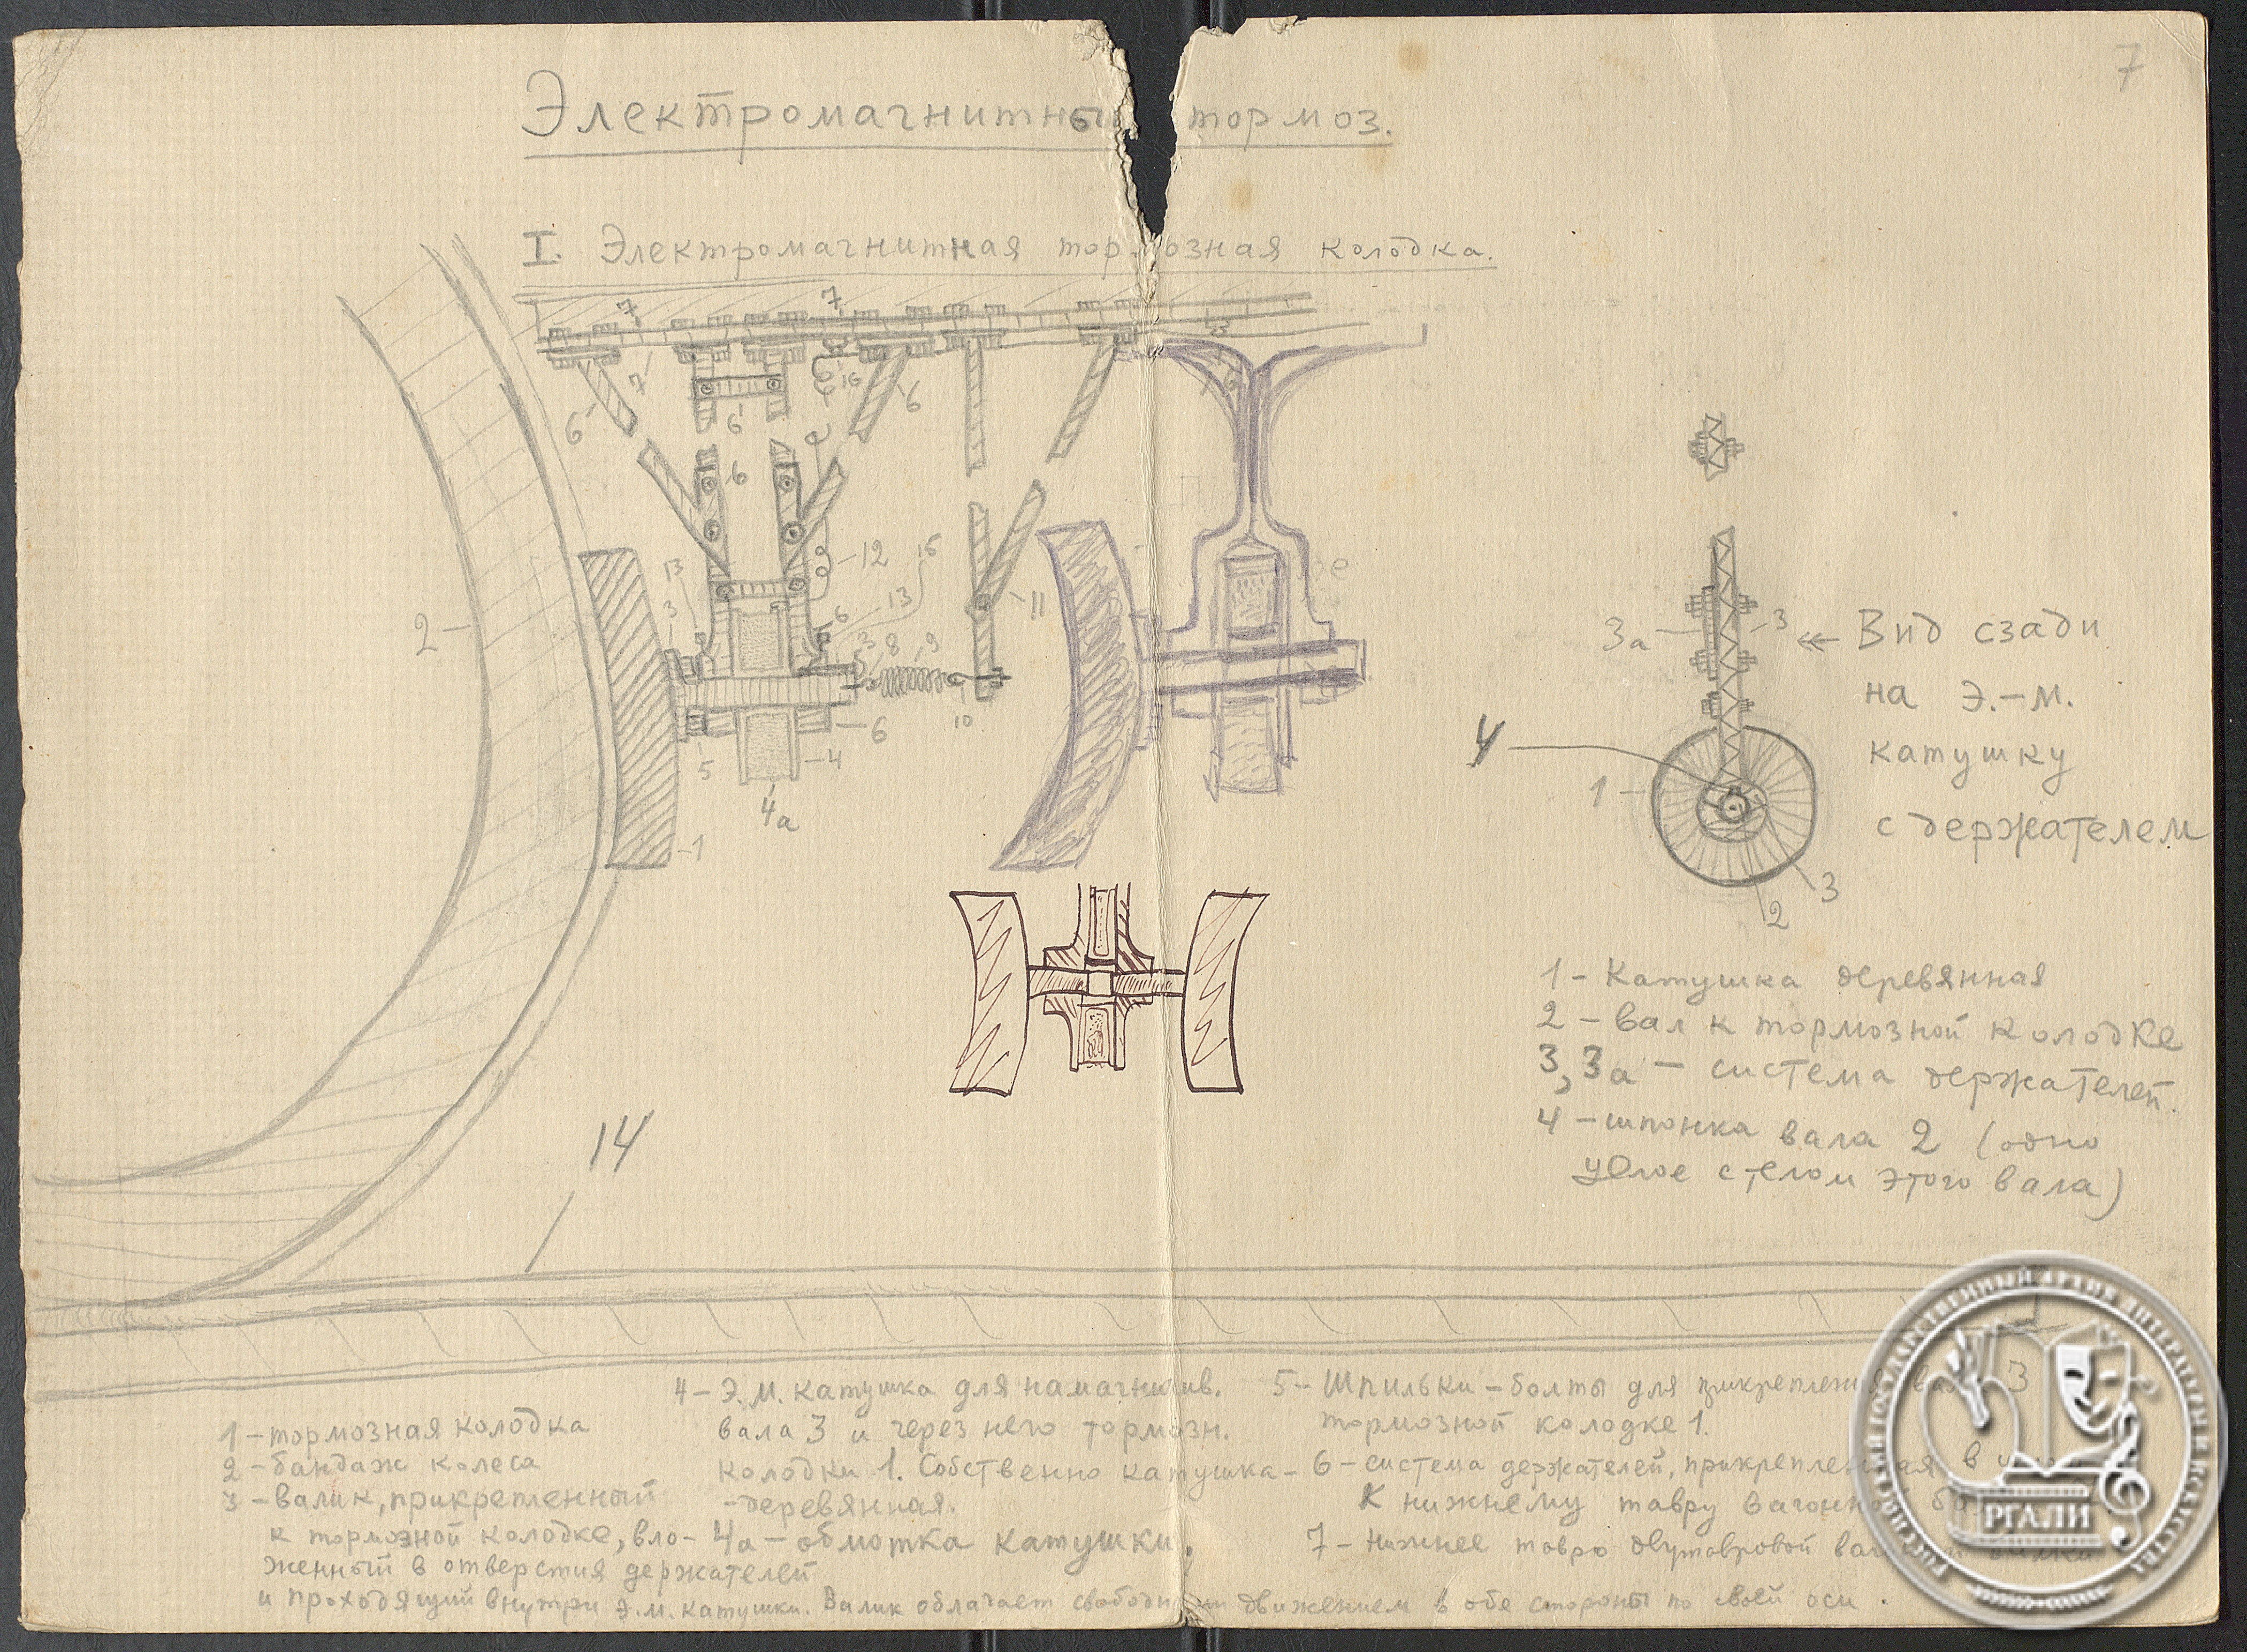 7
Электромагнитны тормоз.
I. Электромагнитная тормозная колодка.
7 7
7 16
6 6 6
6
2 12 16
13 13 11
3 6
3 8 9
10
6
5 4
4а
1
3а 3 Вид сзади
на Э.-М.
катушку
с держателем
4
1
3
2
1 - Катушка деревянная
2 - вал к тормозной колодке
3, 3а - система держателей.
4 - шпонка вала 2 (одно
целое с телом этого вала)
14
1 - тормозная колодка
2 - бандаж колеса
3 - валик, прикрепленный
к тормозной колодке, вло-
женный в отверстия держателей
и проходящий внутри Э.М. катушки. Валик облачает свободн движением в обе стороны по своей оси.
4 - Э.М. катушка для намагничив.
вала 3 и через него тормозн.
колодки 1. Собственно катушка -
- деревянная.
4а - обмотка катушки.
5 - Шпильки - болты для прикрепления 3
тормозной колодке 1.
6 - система держателей, прикрепленная в
к нижнему тавру вагонной
7 - Нижнее тавро двутавровой
РОССИЙСКИЙ ГОСУДАРСТВЕННЫЙ АРХИВ ЛИТЕРАТУРЫ И ИСКУССТВА
РГАЛИ